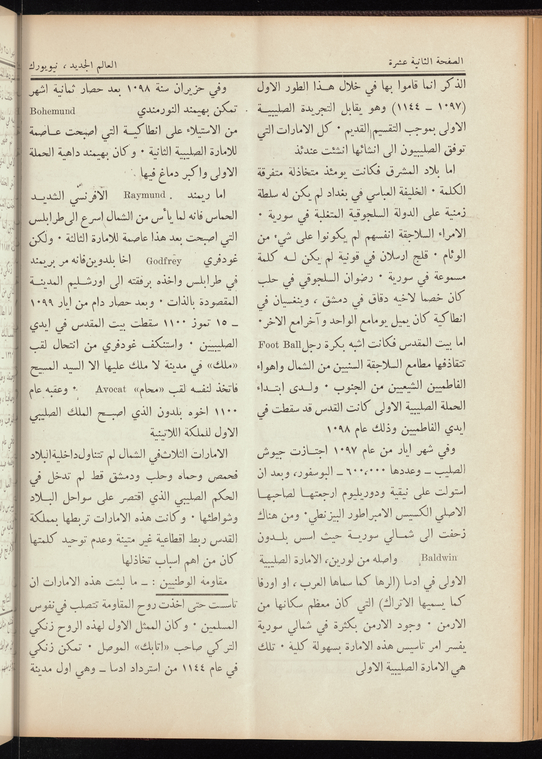 الصفحة الثانية عشرة
العالم الجديد ، نيويورك
الذكر انما قاموا بها في خلال هذا الطور الاول
(١٠٩٧ – ١١٤٤) وهو يقابل التجريدة الصليبية
الاولى بموجب التقسيم القديم ٠ كل الامارات التي
توفق الصليبيون الى انشائها انشئت عندئذ
اما بلاد المشرق فكانت يومئذ متخاذلة متفرقة
الكلمة ٠ الخليفة العباسي في بغداد لم يكن له سلطة
زمنية على الدولة السلجوقية المتغلبة في سورية ٠
الامراء السلاجقة انفسهم لم يكونوا على شيء من
الوئام ٠ قلج ارسلان في قونية لم يكن له كلمة
مسموعة في سورية ٠ رضوان السلجوقي في حلب
كان خصما لاخيه دقاق في دمشق ، وينغسيان في
انطاكية كان يميل يوما مع الواحد وآخر مع الاخر ٠
اما بيت المقدس فكانت اشبه بكرة رجل Foot Ball
تتقاذفها مطامع السلاجقة السنيين من الشمال واهواء
الفاطميين الشيعيين من الجنوب ٠ ولدى ابتداء
الحملة الصليبية الاولى كانت القدس قد سقطت في
ايدي الفاطميين وذلك عام ١٠٩٨
وفي شهر ايار من عام ١٠٩٧ اجتازت جيوش
الصليب – وعددها ٦٠٠،٠٠٠ – البوسفور، وبعد ان
استولت على نيقية ودوريليوم ارجعتها لصاحبها
الاصلي الكسيس الامبراطور البيزنطي ٠ ومن هناك
زحفت الى شمالي سورية حيث اسس بلدون
Baldwin واصله من لورين، الامارة الصليبية
الاولى في ادسا (الرها كما سماها العرب ، او اورفا
كما يسميها الاتراك) التي كان معظم سكانها من
الارمن ٠ وجود الارمن بكثرة في شمالي سورية
يفسر امر تاسيس هذه الامارة بسهولة كلية ٠ تلك
هي الامارة الصليبية الاولى
وفي حزيران سنة ١٠٩٨ بعد حصار ثمانية اشهر
تمكن بهيمند النورمندي Bohemund
من الاستيلاء على انطاكية التي اصبحت عاصمة
للامارة الصليبية الثانية ٠ وكان بهيمند داهية الحملة
الاولى واكبر دماغ فيها ٠
اما ريمند Raymund الافرنسي الشديد
الحماس فانه لما يأس من الشمال اسرع الى طرابلس
التي اصبحت بعد هذا عاصمة للامارة الثالثة ٠ ولكن
غودفري Godfrey اخا بلدوين فانه مر بريمند
في طرابلس واخذه برفقته الى اورشليم المدينة
المقصودة بالذات ٠ وبعد حصار دام من ايار ١٠٩٩
– ١٥ تموز ١١٠٠ سقطت بيت المقدس في ايدي
الصليبيين ٠ واستنكف غودفري من انتحال لقب
«ملك» في مدينة لا ملك عليها الا السيد المسيح
فاتخذ لنفسه لقب «محام» Avocat ٠ وعقبه عام
١١٠٠ اخوه بلدون الذي اصبح الملك الصليبي
الاول للمملكة اللاتينية
الامارات الثلاث في الشمال لم تتناول داخلية البلاد
فحمص وحماه وحلب ودمشق قط لم تدخل في
الحكم الصليبي الذي اقتصر على سواحل البلاد
وشواطئها ٠ وكانت هذه الامارات تربطها بمملكة
القدس ربط اقطاعية غير متينة وعدم توحيد كلمتها
كان من اهم اسباب تخاذلها
مقاومة الوطنيين : – ما لبثت هذه الامارات ان
تاسست حتى اخذت روح المقاومة تتصلب في نفوس
المسلمين ٠ وكان الممثل الاول لهذه الروح زنكي
التركي صاحب «اتابك» الموصل ٠ تمكن زنكي
في عام ١١٤٤ من استرداد ادسا – وهي اول مدينة